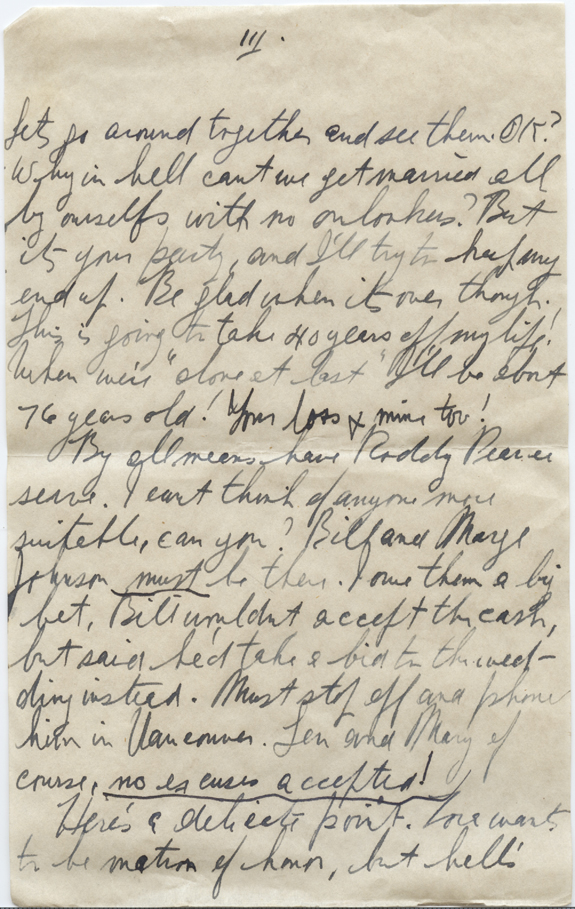 III.
let's go around together and see them. OK?
Why in hell can't we get married all
by ourselfs with no onlookers? But
it's your party, and I'll try to keep my
end up. Be glad when it's over though.
This is going to take 40 years off my life!
When we're "alone at last" I'll be about
76 years old! Your loss & mine too!
By all means have Roddy
serve. I can't think of anyone more
suitable, can you? Bill and Marge
Johnson must be there. I owe them a big
bet, Bill wouldn't accept the cash,
but said he'd take a bid to the wed-
ding instead. Must stop off and phone
him in Vancouver. Len and Mary of
course, no excuses accepted!
Here's a delicate point. Lora wants
to be matron of honor, but hell's